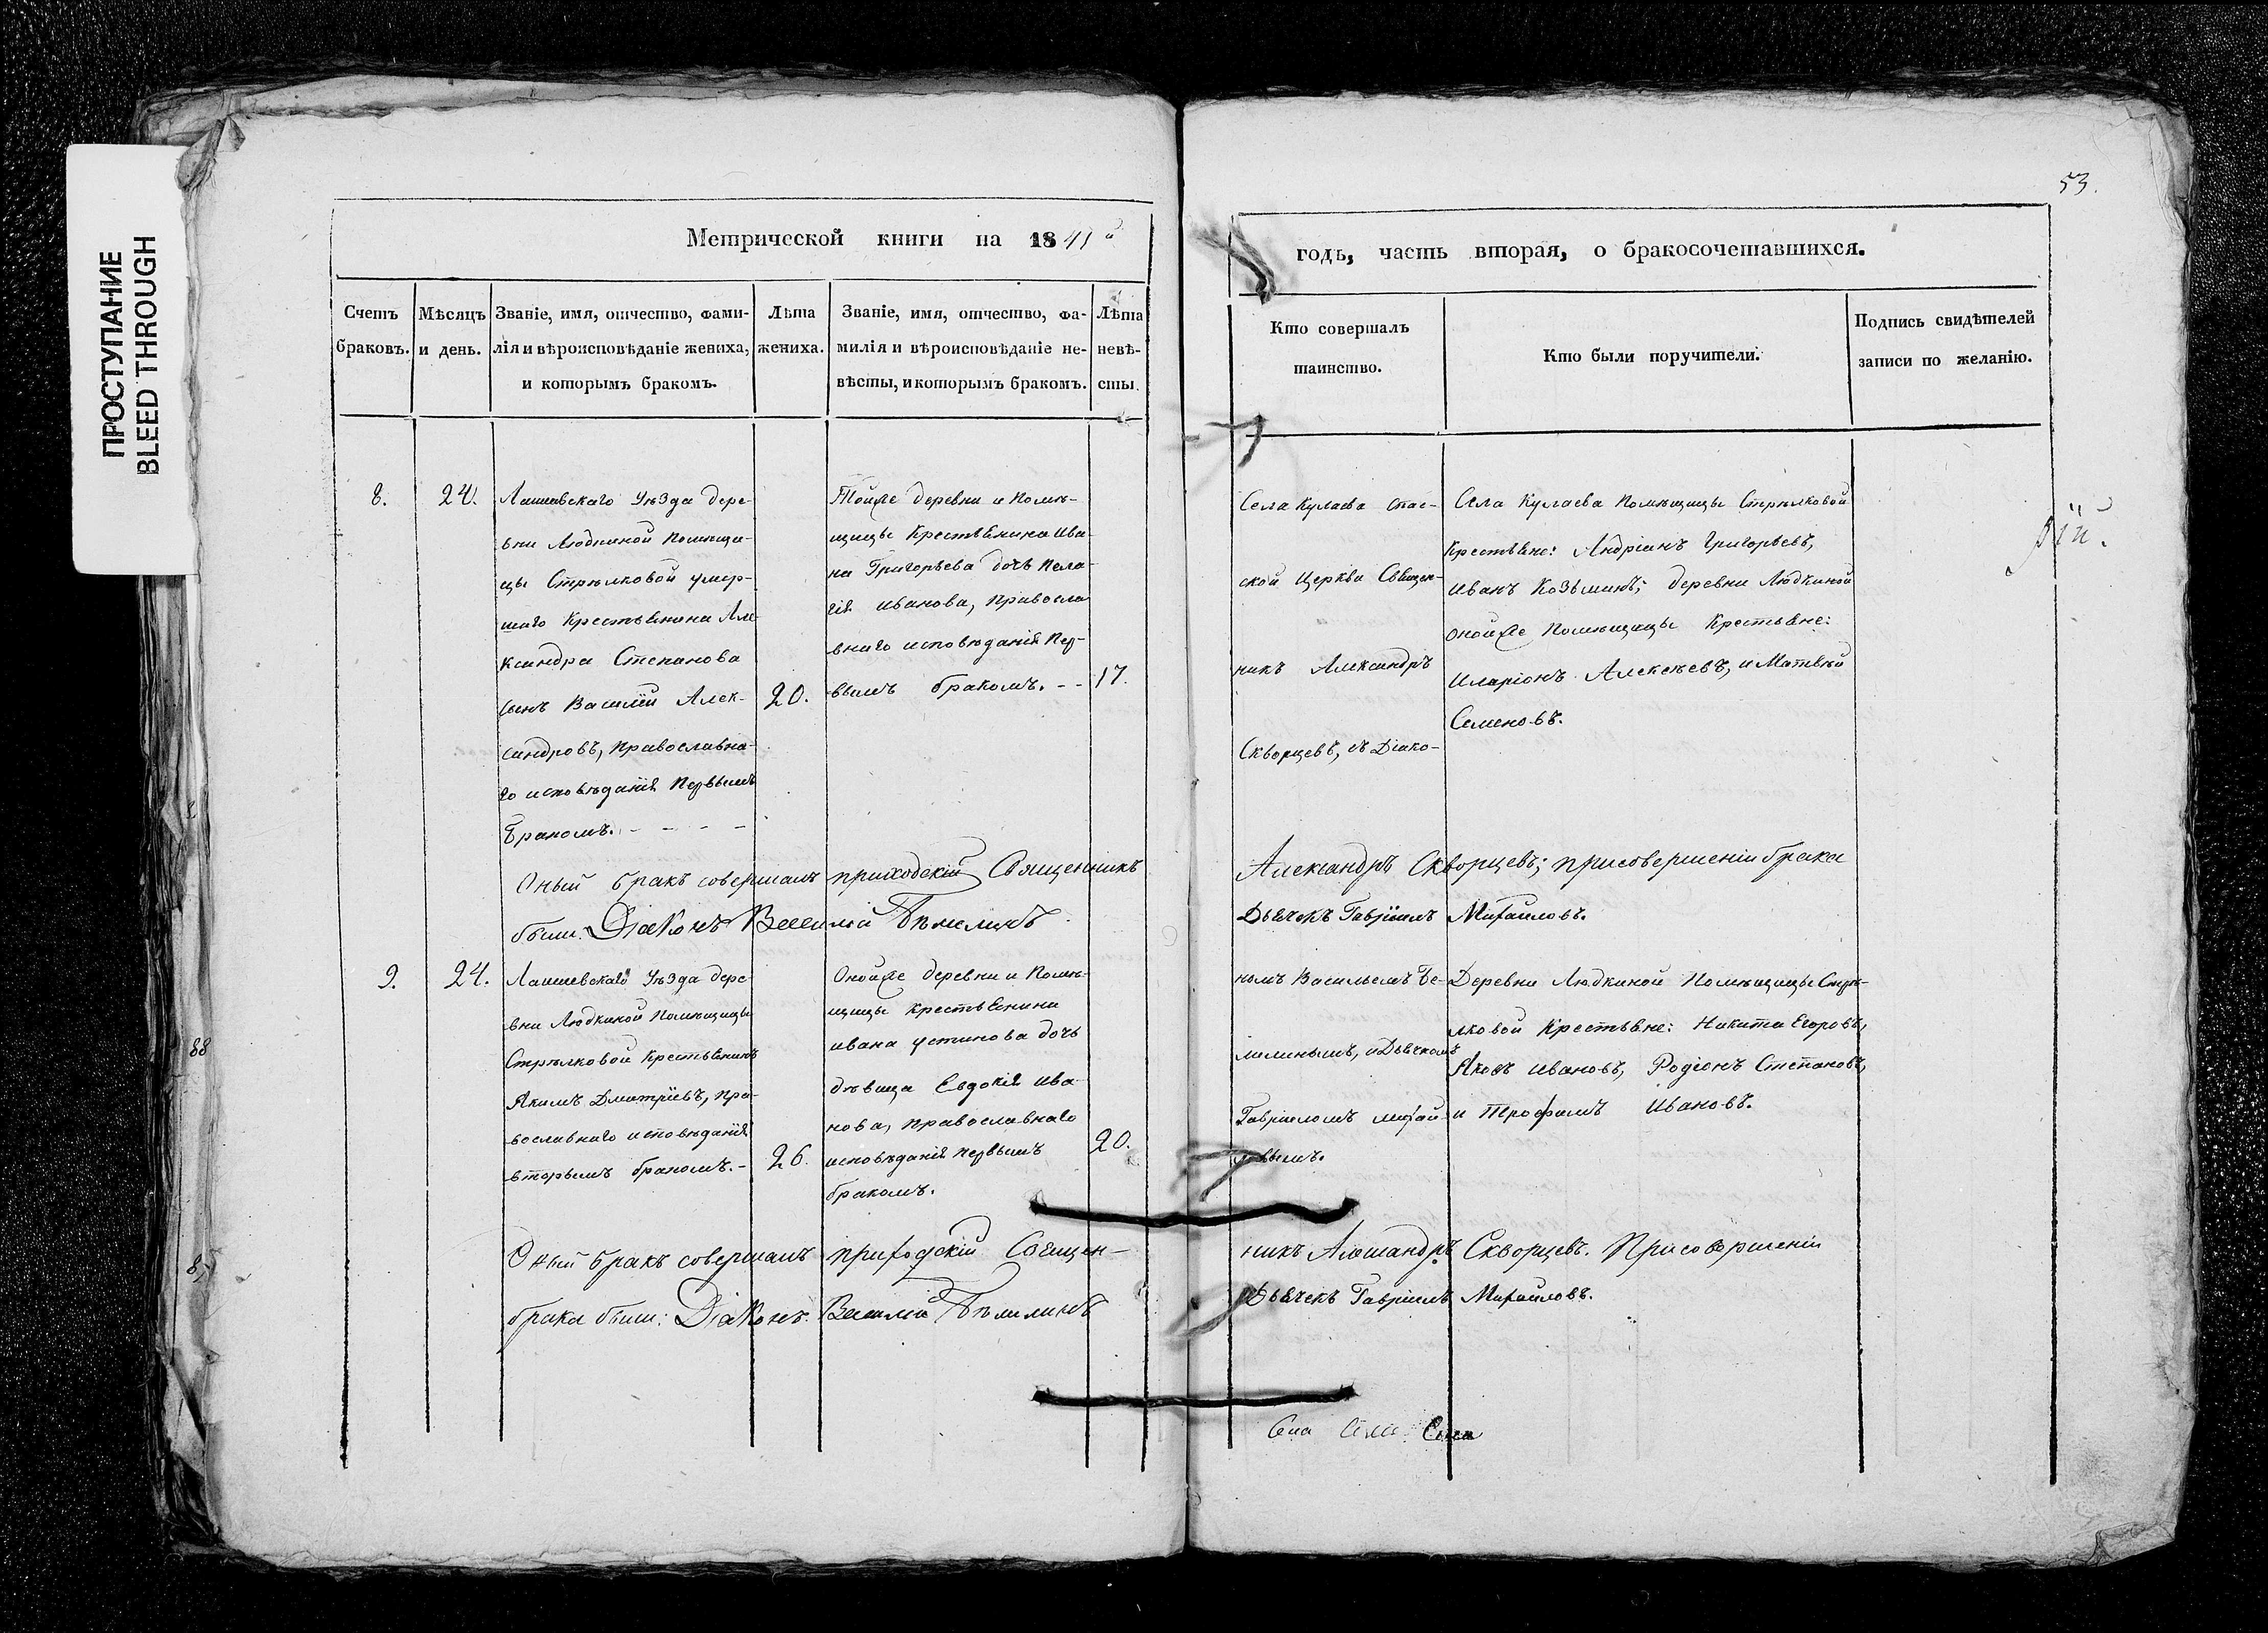 ПРОСТУПАНИЕ
BLEED THROUGH
53.
Метрической книги на 1841й
годъ, часть вторая, о бракосочетавшихся.
Счетъ браковъ.
Мѣсяцъ и день.
Званіе, имя, отчество, фами-
лія и вѣроисповѣданіе жениха,
и которымъ бракомъ.
Лѣта
жениха.
Званіе, имя, отчество, фа-
милія и вѣроисповѣданіе не-
вѣсты, и которымъ бракомъ.
Лѣта
невѣ-
сты.
Кто совершалъ
таинство.
Кто были поручители.
Подпись свидѣтелей
записи по желанію.
8.
24.
Лаишевскаго Уѣзда дере-
вни Людкиной Помѣщи-
цы Стрѣлковой умер-
шаго Крестьянина Але
ксандра Степанова
сынъ Василій Алек-
сандровъ, Православна-
го исповѣданія Первымъ
бракомъ. - - - -
20.
Тойже деревни и Помѣ-
щицы Крестьянина Ива-
на Григорьева дочь Пела-
гія Иванова, Правосла
внаго исповѣданія Пер-
вымъ бракомъ. - -
17.
Села Кулаева Спас-
ской Церкви Священ-
никъ Александръ
Скворцевъ, съ Діако-
Села Кулаева Помѣщицы Стрѣлковой
Крестьяне: Андріанъ Григорьевъ,
Иванъ Козьминъ; деревни Людкиной
онойже Помѣщицы Крестьяне:
Иларіонъ Алексѣевъ, и Матвѣй
Семеновъ.
Оный бракъ совершалъ приходскій Священникъ
Александръ Скворцевъ; при совершеніи брака
были: Діаконъ Василій Бѣмелинъ
Дьячекъ Гавріилъ Михаиловъ.
9.
24.
Лаишевскаго Уѣзда дере
вни Людкиной Помѣщицы
Стрѣлковой Крестьянинъ
Якимъ Дмитріевъ, Пра-
вославнаго исповѣданія
вторымъ бракомъ. -
26.
Онойже деревни и Помѣ-
щицы Крестьянина
Ивана Устинова дочь
дѣвица Евдокія Ива-
нова, Православнаго
исповѣданія первымъ
бракомъ.
20.
номъ Васильемъ Бе-
мелинымъ, и Дьячкомъ
Гавріиломъ Михай-
ловымъ.
Деревни Людкиной Помѣщицы Стрѣ-
лковой Крестьяне: Никита Егоровъ,
Яковъ Ивановъ, Родіонъ Степановъ,
и Трофимъ Ивановъ.
Оный бракъ совершалъ приходскій Священ-
никъ Александръ Скворцевъ. При совершеніи
брака были: Діаконъ Василій Бѣмелинъ
Дьячекъ Гавріилъ Михайловъ.
88